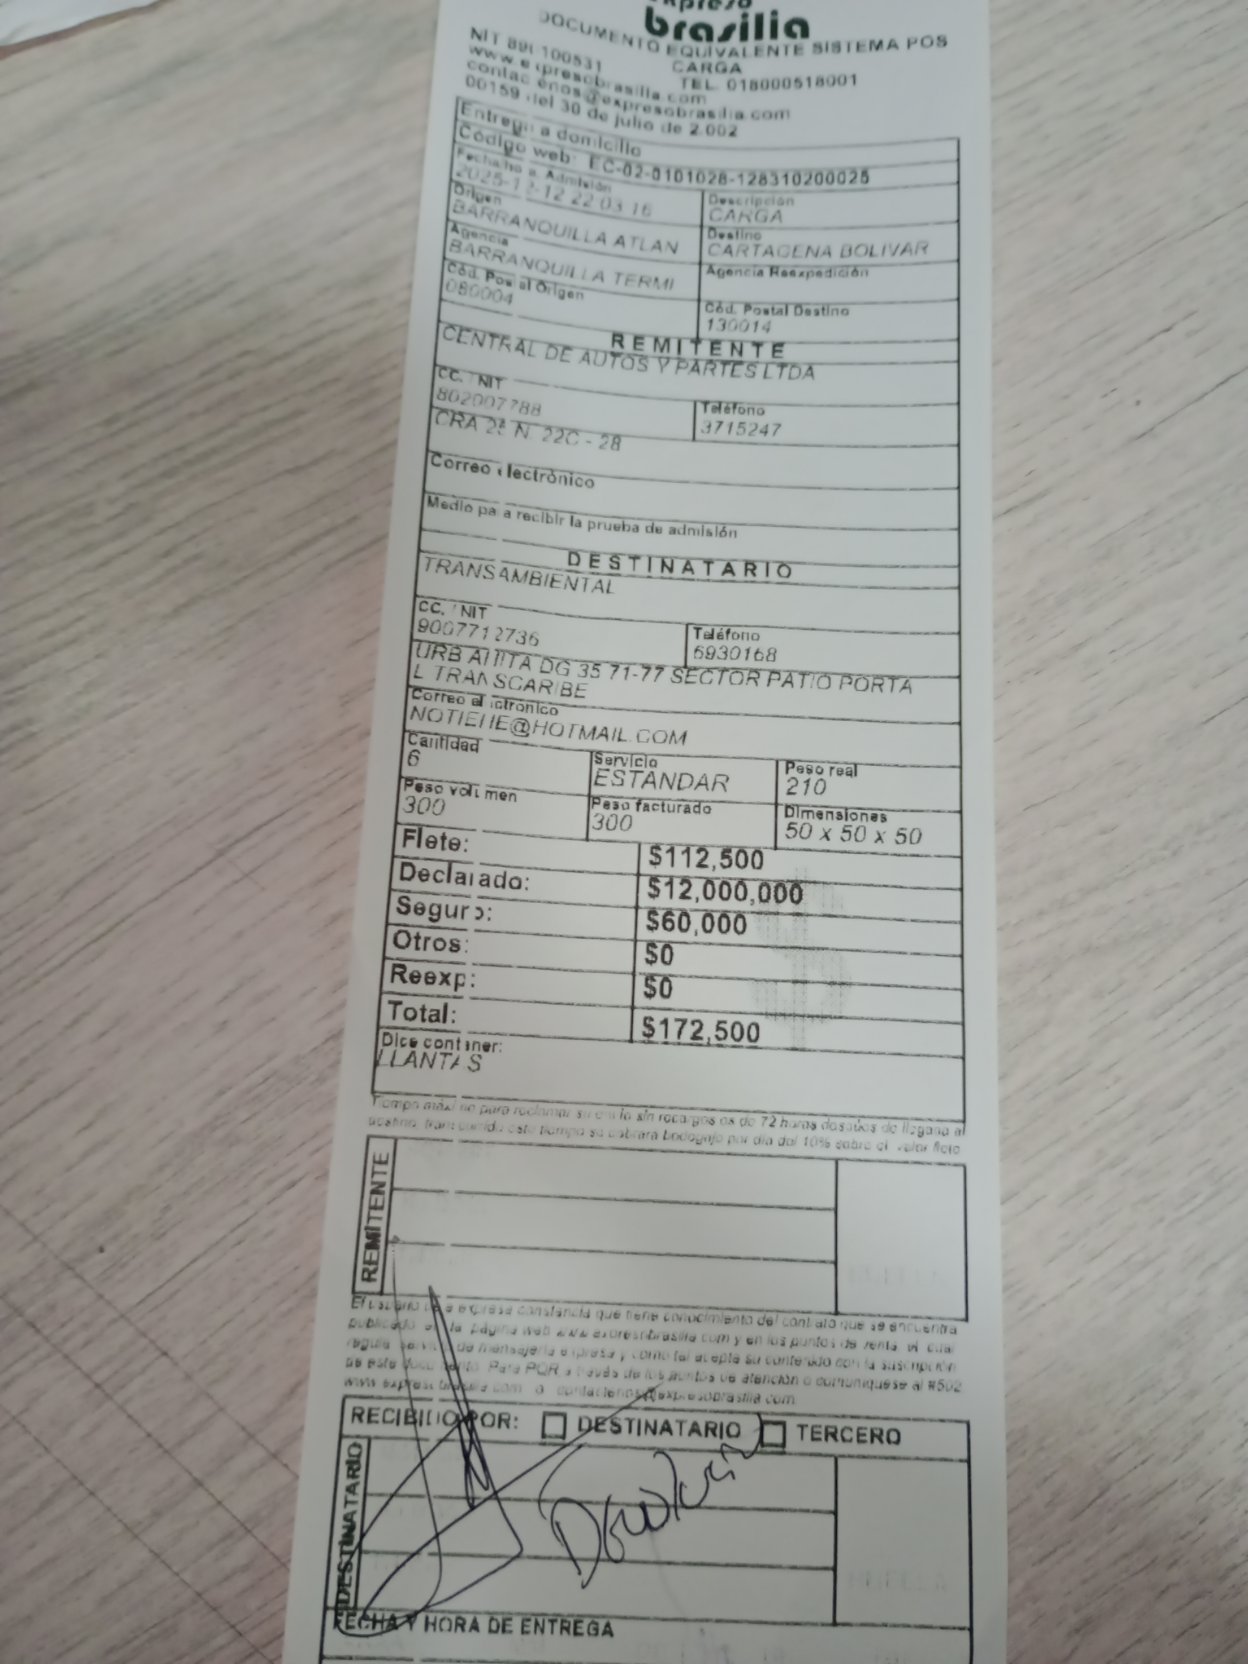 expreso
brasilia
DOCUMENTO EQUIVALENTE SISTEMA POS
CARGA
NIT 890100531 TEL. 018000518001
www.expresobrasilia.com
contactenos@expresobrasilia.com
00159 del 30 de julio de 2.002
Entrega a domicilio
Código web: EC-02-0101028-128310200025
Fecha/hora Admisión Descripción
2025-12-12 22 03 16 CARGA
Origen Destino
BARRANQUILLA ATLAN CARTAGENA BOLIVAR
Agencia Agencia Reexpedición
BARRANQUILLA TERMI
Cód. Postal Origen Cód. Postal Destino
080004 130014
REMITENTE
CENTRAL DE AUTOS Y PARTES LTDA
CC. / NIT Teléfono
802007788 3715247
CRA 25 N. 22C - 28
Correo electrónico
Medio para recibir la prueba de admisión
DESTINATARIO
TRANSAMBIENTAL
CC. / NIT Teléfono
9007712736 6930168
URB ANITA DG 35 71-77 SECTOR PATIO PORTA
L TRANSCARIBE
Correo electronico
NOTIEHE@HOTMAIL.COM
Cantidad Servicio Peso real
6 ESTANDAR 210
Peso volumen Peso facturado Dimensiones
300 300 50 x 50 x 50
Flete: $112,500
Declarado: $12,000,000
Seguro: $60,000
Otros: $0
Reexp: $0
Total: $172,500
Dice contener:
LLANTAS
Tiempo máximo para reclamar su envío sin recargos es de 72 horas después de llegada al
destino, transcurrido este tiempo se cobrará bodegaje por día del 10% sobre el valor flete
REMITENTE
El usuario deja expresa constancia que tiene conocimiento del contrato que se encuentra
publicado en la página web www.expresobrasilia.com y en los puntos de venta, el cual
regula servicio de mensajería expresa y como tal acepta su contenido con la suscripción
de este documento. Para PQR a través de los puntos de atención o comuníquese al #502
www.expresobrasilia.com o contactenos@expresobrasilia.com
RECIBIDO POR: DESTINATARIO TERCERO
DESTINATARIO
FECHA Y HORA DE ENTREGA